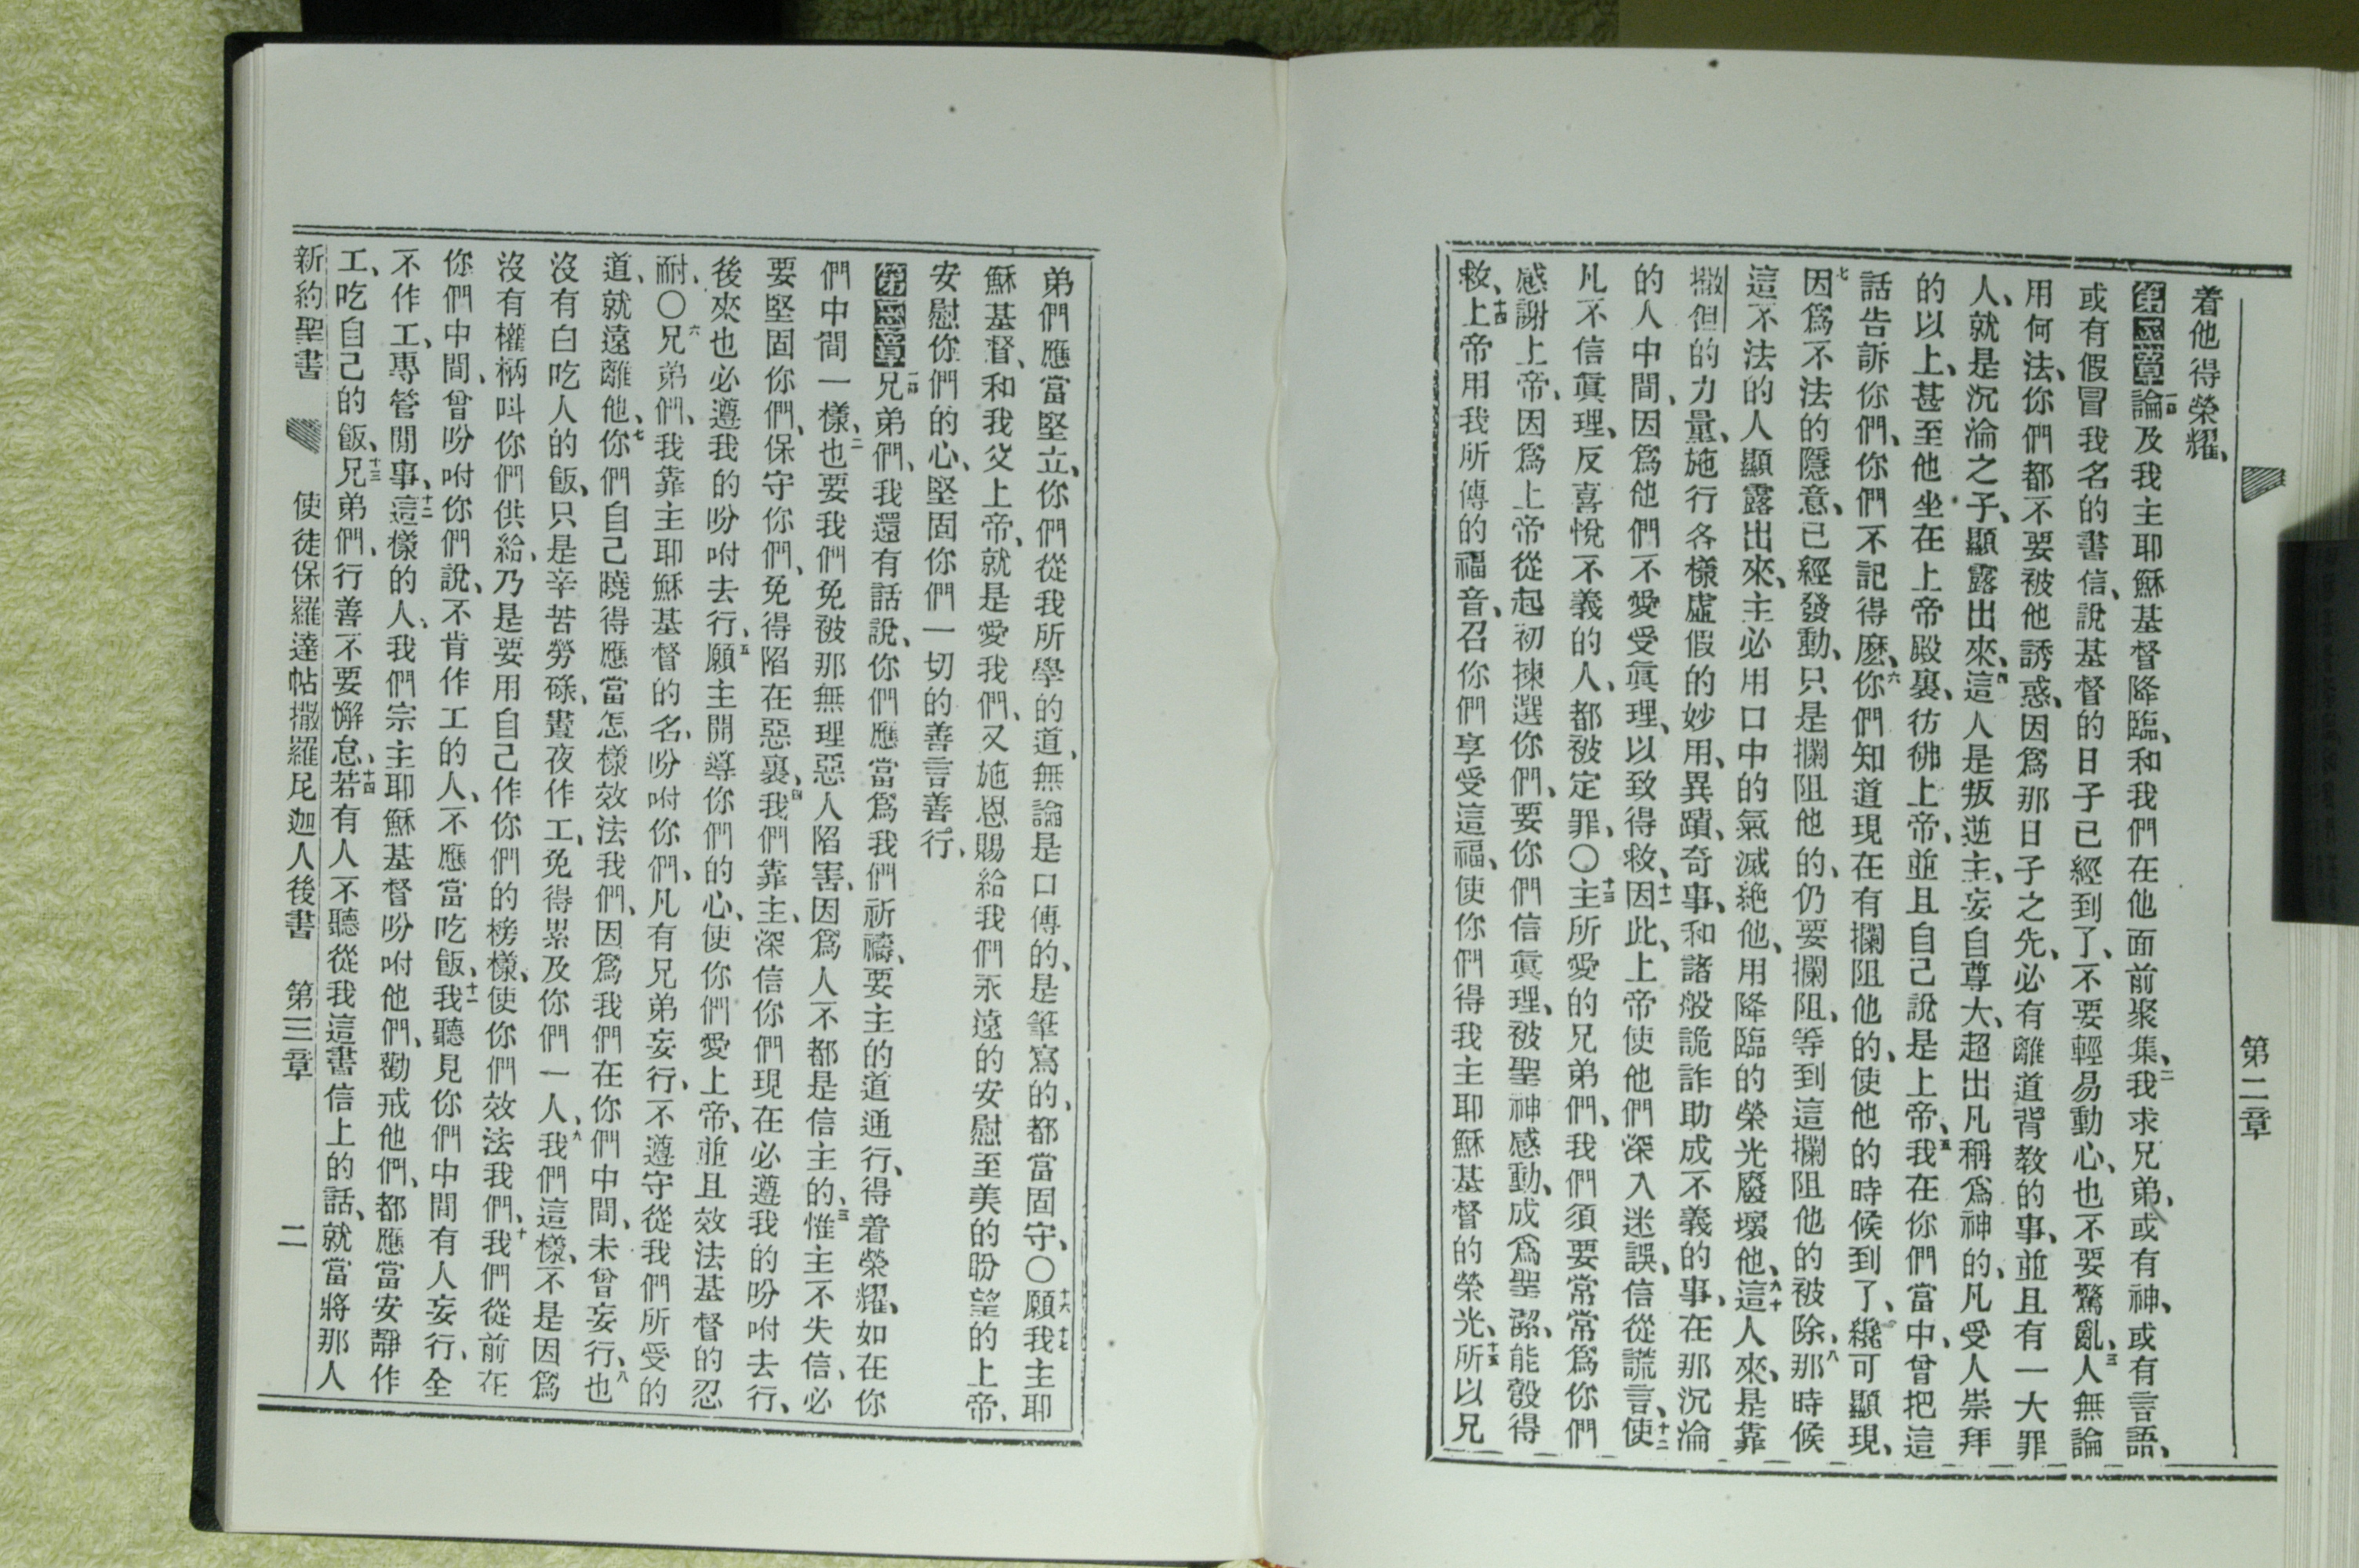 第二章
着他得榮耀、
第二章一節論及我主耶穌基督降臨、和我們在他面前聚集、二我求兄弟、或有神、或有言語、
或有假冒我名的書信、說基督的日子已經到了、不要輕易動心、也不要驚亂、三人無論
用何法、你們都不要被他誘惑、因爲那日子之先、必有離道背教的事、並且有一大罪
人、就是沉淪之子、顯露出來、四這人是叛逆主、妄自尊大、超出凡稱爲神的、凡受人崇拜
的以上、甚至他坐在上帝殿裏、彷彿上帝、並且自己說是上帝、五我在你們當中、曾把這
話告訴你們、你們不記得麽、六你們知道現在有攔阻他的、使他的時候到了、纔可顯現、
七因爲不法的隱意、已經發動、只是攔阻他的、仍要攔阻、等到這攔阻他的被除、八那時候
這不法的人顯露出來、主必用口中的氣滅絕他、用降臨的榮光廢壞他、九十這人來、是靠
撒但的力量、施行各樣虛假的妙用、異蹟、奇事、和諸般詭詐助成不義的事、在那沉淪
的人中間、因爲他們不愛受眞理、以致得救、十一因此、上帝使他們深入迷誤、信從謊言、十二使
凡不信眞理、反喜悅不義的人、都被定罪、〇十三主所愛的兄弟們、我們須要常常爲你們
感謝上帝、因爲上帝從起初揀選你們、要你們信眞理、被聖神感動、成爲聖潔、能彀得
救、十四上帝用我所傳的福音、召你們享受這福、使你們得我主耶穌基督的榮光、十五所以兄
弟們應當堅立、你們從我所學的道、無論是口傳的、是筆寫的、都當固守、〇十六願我十七主耶
穌基督、和我父上帝、就是愛我們、又施恩賜給我們永遠的安慰至美的盼望的上帝、
安慰你們的心、堅固你們一切的善言善行、
第三章一節兄弟們、我還有話說、你們應當爲我們祈禱、要主的道通行、得着榮耀、如在你
們中間一樣、二也要我們免被那無理惡人陷害、因爲人不都是信主的、三惟主不失信、必
要堅固你們、保守你們、免得陷在惡裏、四我們靠主、深信你們現在必遵我的吩咐去行、
後來也必遵我的吩咐去行、五願主開導你們的心、使你們愛上帝、並且效法基督的忍
耐、〇六兄弟們、我靠主耶穌基督的名、吩咐你們、凡有兄弟妄行、不遵守從我們所受的
道、就遠離他、七你們自己曉得應當怎樣效法我們、因爲我們在你們中間、未曾妄行、八也
沒有白吃人的飯、只是辛苦勞碌、晝夜作工、免得累及你們一人、九我們這樣、不是因爲
沒有權柄呌你們供給、乃是要用自己作你們的榜樣、使你們效法我們、十我們從前在
你們中間、曾吩咐你們說、不肯作工的人、不應當吃飯、十一我聽見你們中間有人妄行、全
不作工、專管閒事、十二這樣的人、我們宗主耶穌基督吩咐他們、勸戒他們、都應當安靜作
工、吃自己的飯、十三兄弟們、行善不要懈怠、十四若有人不聽從我這書信上的話、就當將那人
新約聖書 使徒保羅達帖撒羅尼迦人後書 第三章 二